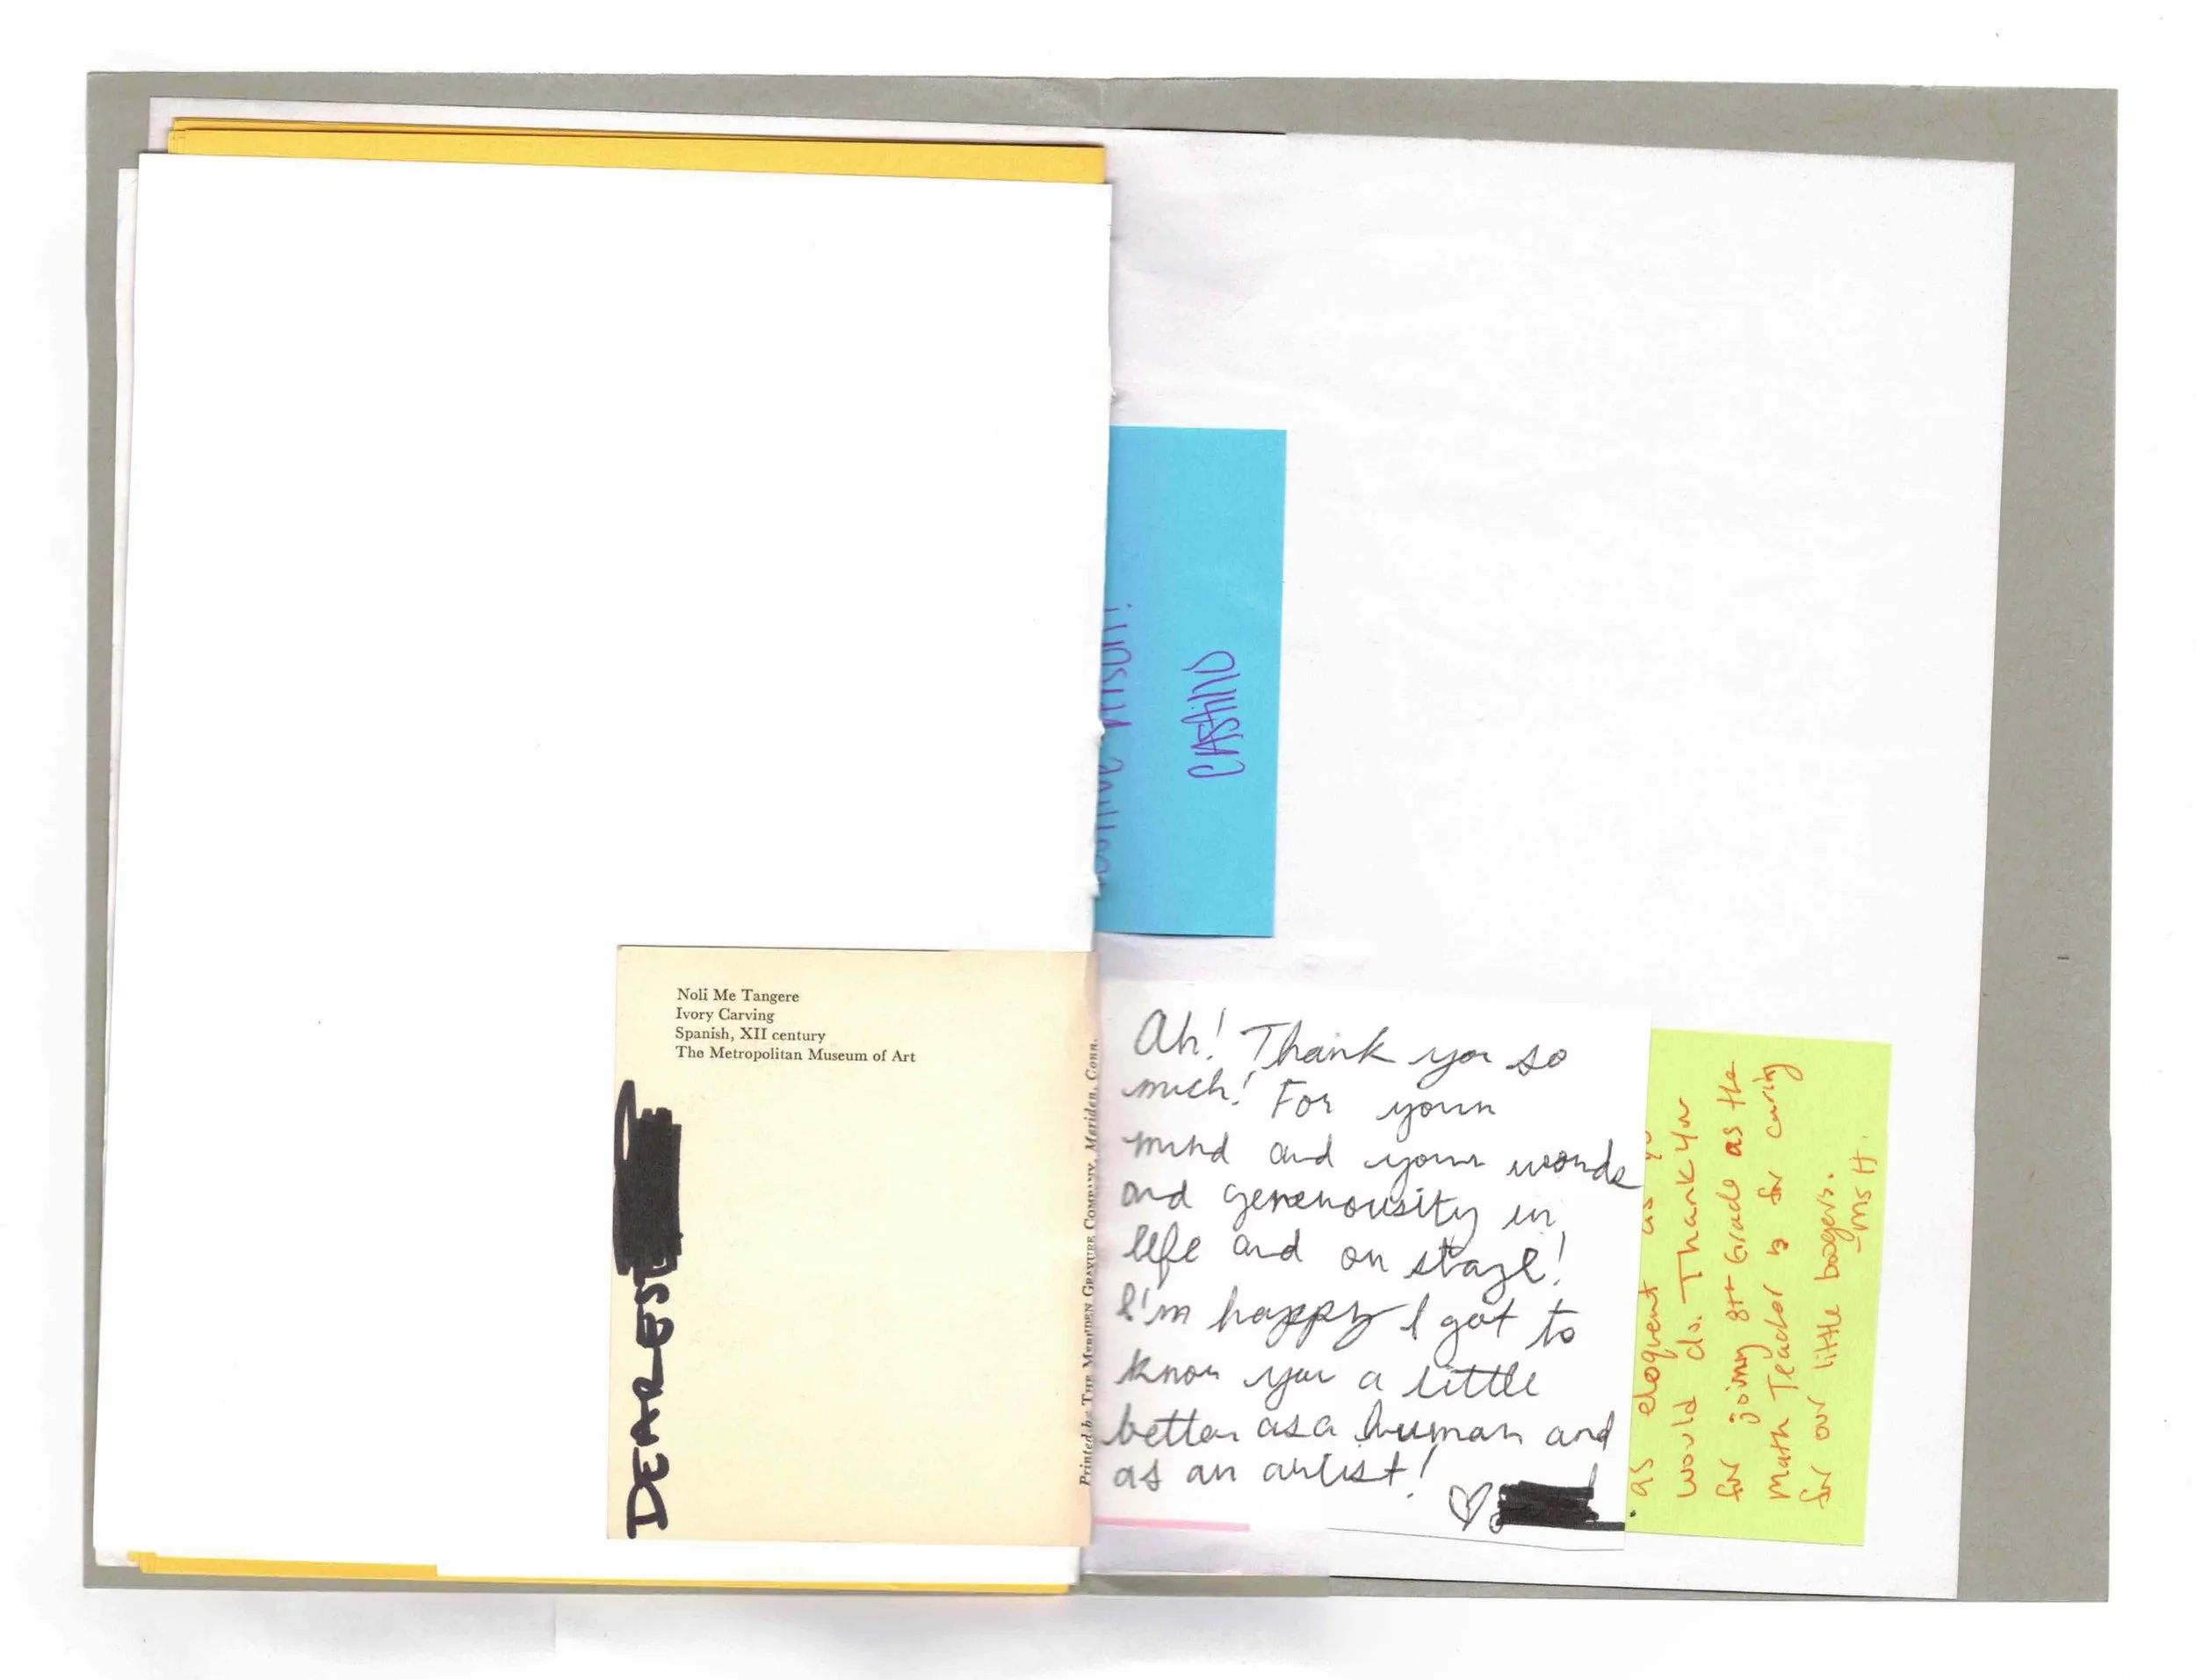 Noli Me Tangere
Ivory Carving
Spanish, XII century
The Metropolitan Museum of Art
DEAREST
Printed by THE MERIDEN GRAVURE COMPANY, Meriden, Conn.
CASTILLO
Ah! Thank you so
much! For your
mind and your words
and generousity in
life and on stage!
I'm happy I got to
know you a little
better as a human and
as an artist!
as eloquent as
would do. Thank you
for joining 8th Grade as the
Math Teacher & for caring
for our little boogers.
-Ms H.